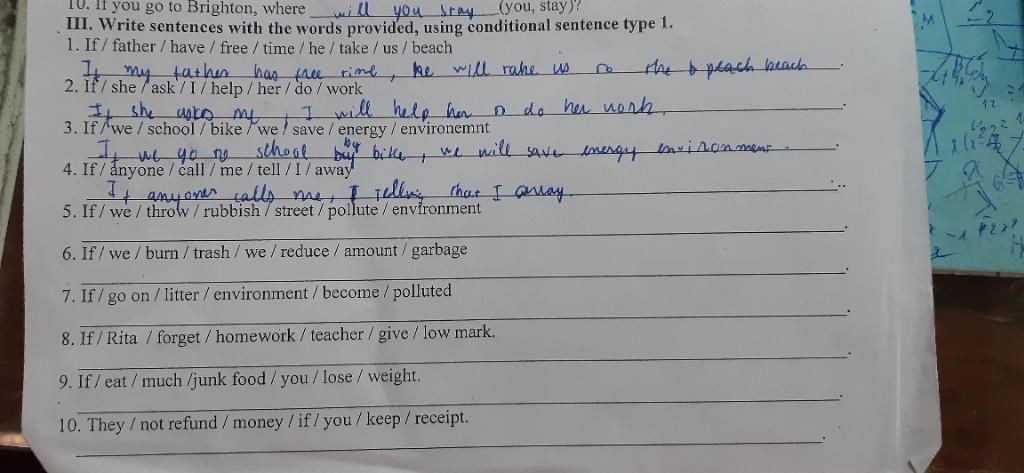 10. If you go to Brighton, where will you stay (you, stay)?
III. Write sentences with the words provided, using conditional sentence type 1.
1. If / father / have / free / time / he / take / us / beach
If my father has free time, he will take us to the beach.
2. If / she / ask / I / help / her / do / work
If she asks me, I will help her to do her work.
3. If / we / school / bike / we / save / energy / environemnt
If we go to school by bike, we will save energy environment.
4. If / anyone / call / me / tell / I / away
If anyone calls me, telling that I away.
5. If / we / throw / rubbish / street / pollute / environment
6. If / we / burn / trash / we / reduce / amount / garbage
7. If / go on / litter / environment / become / polluted
8. If / Rita / forget / homework / teacher / give / low mark.
9. If / eat / much /junk food / you / lose / weight.
10. They / not refund / money / if / you / keep / receipt.